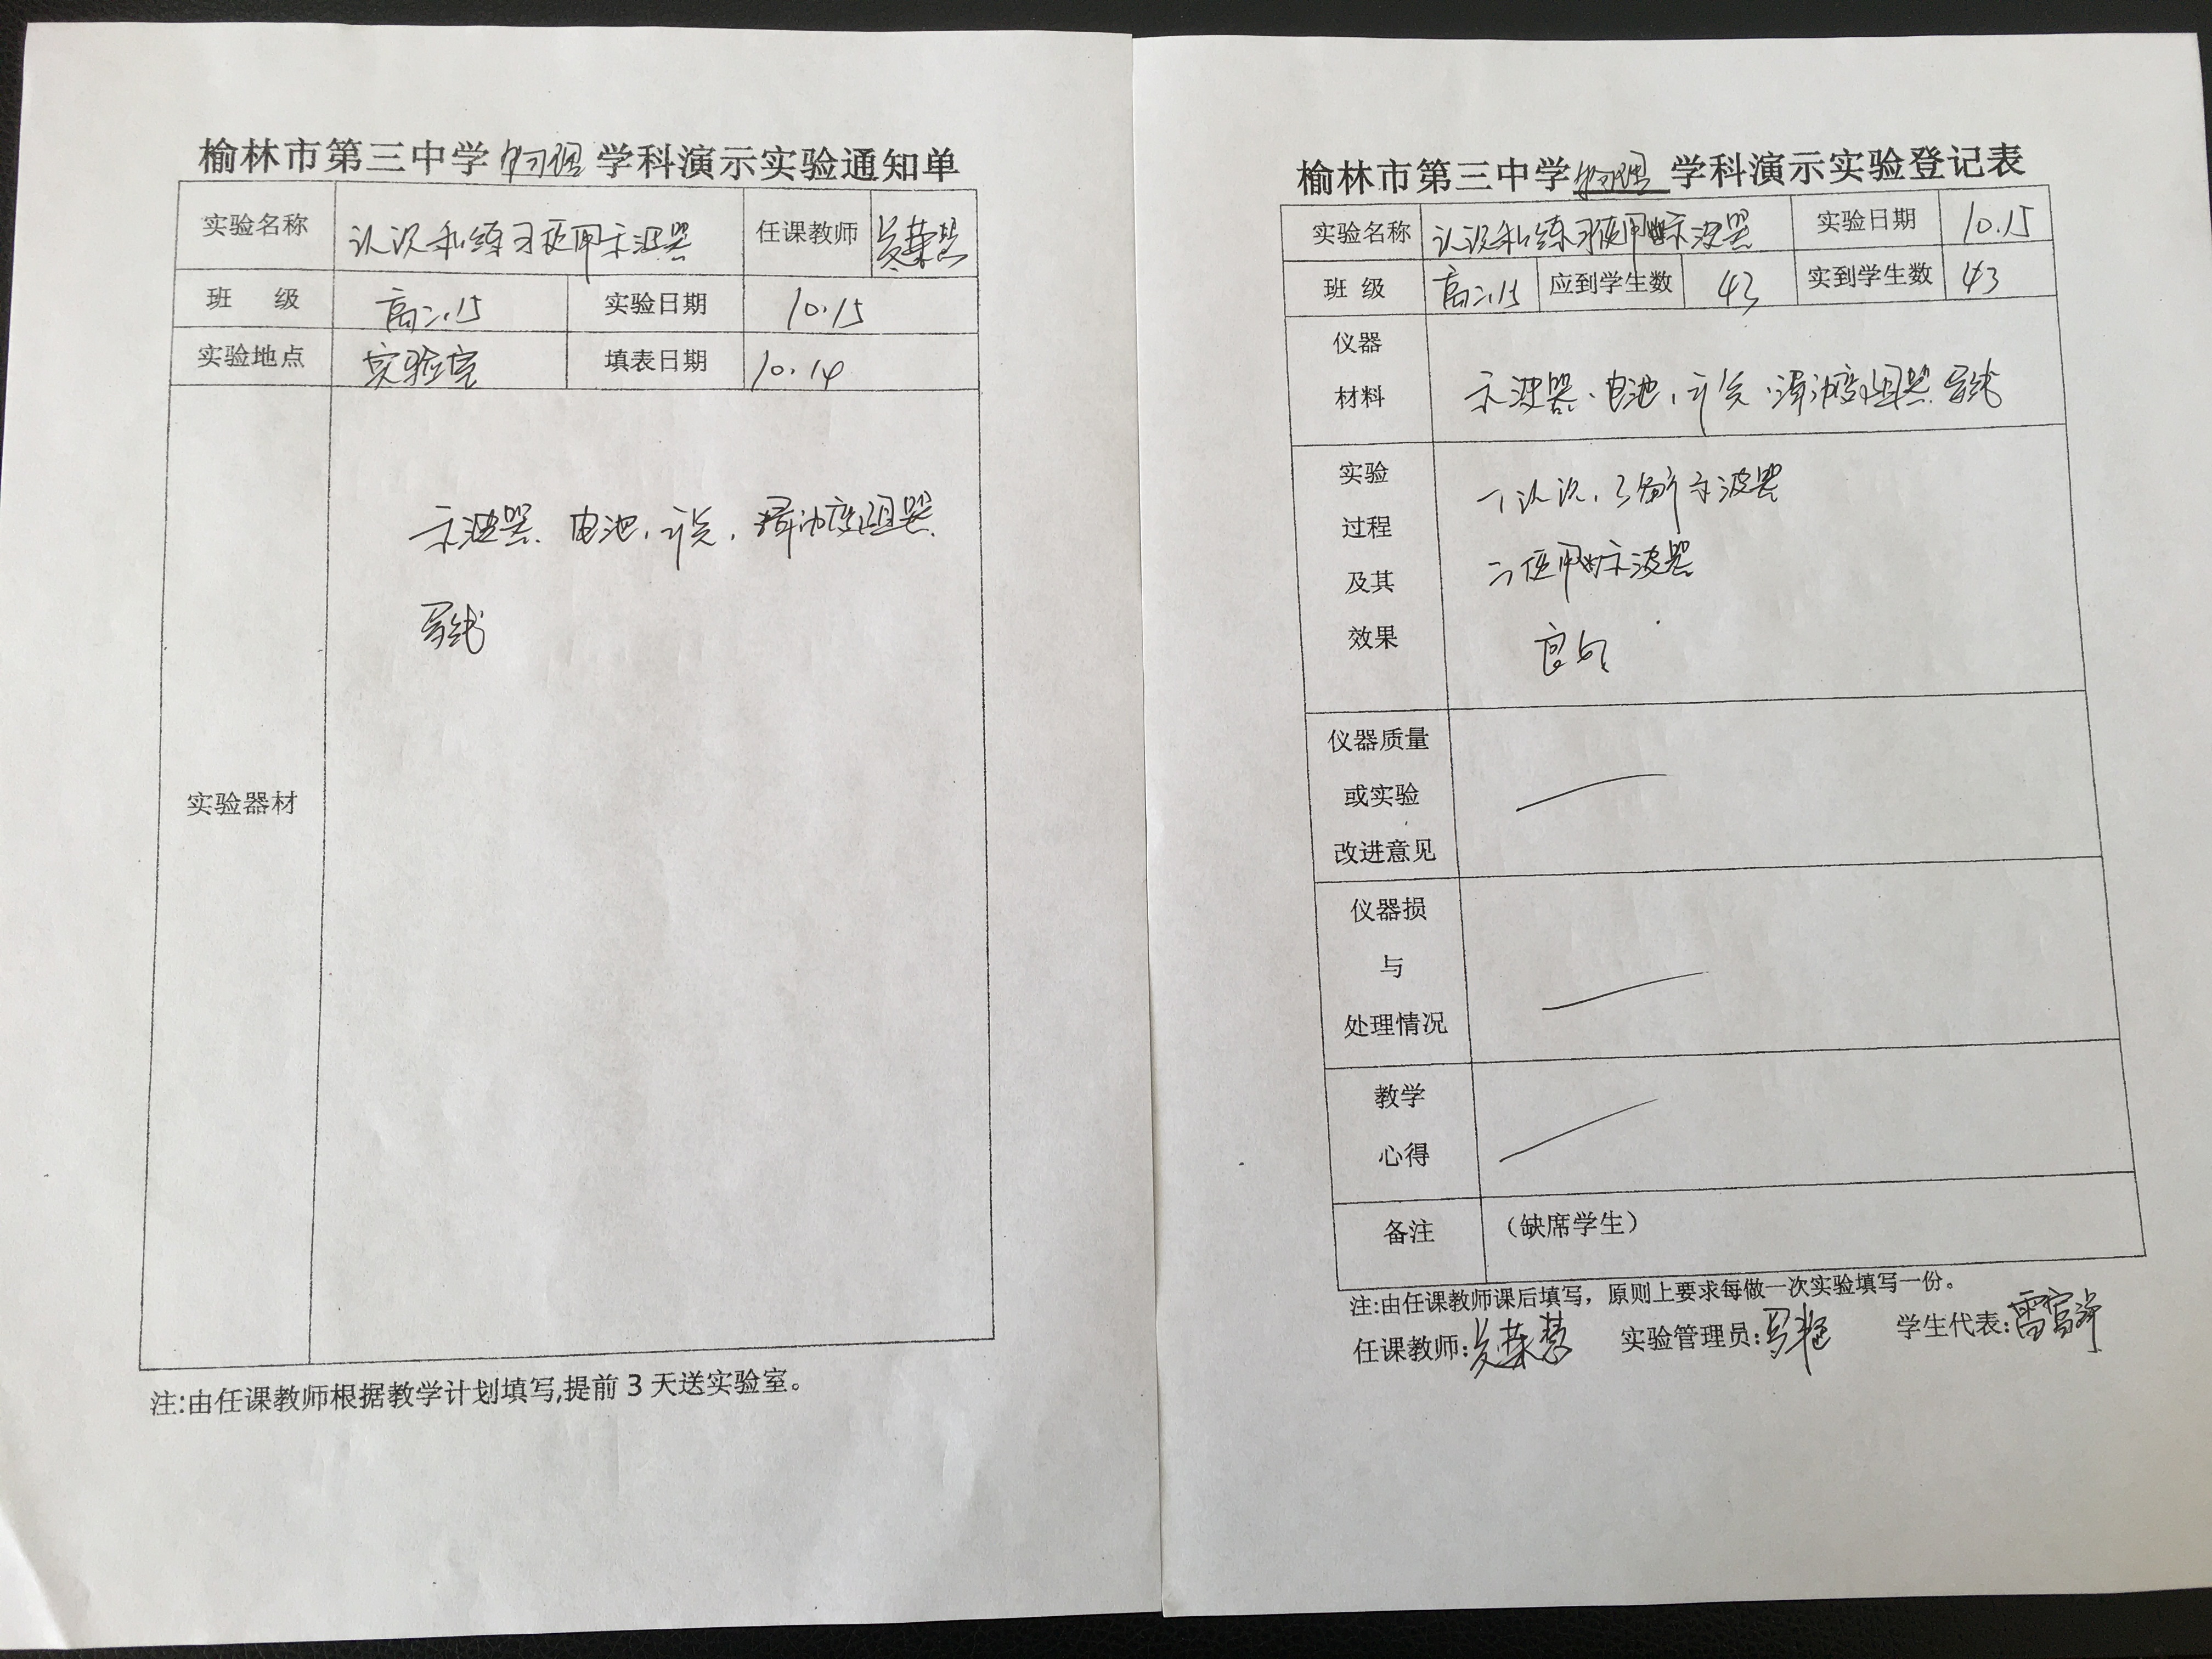 榆林市第三中学物理学科演示实验通知单
实验名称 认识和练习使用示波器 任课教师
班 级 高二.15 实验日期 10.15
实验地点 实验室 填表日期 10.14
实验器材
示波器、电池、开关、滑动变阻器、
导线
注:由任课教师根据教学计划填写,提前3天送实验室。
榆林市第三中学物理学科演示实验登记表
实验名称 认识和练习使用示波器 实验日期 10.15
班 级 高二.15 应到学生数 43 实到学生数 43
仪器
材料
示波器、电池、开关、滑动变阻器、导线
实验
过程
及其
效果
一、认识、了解示波器
二、使用示波器
良好
仪器质量
或实验
改进意见
仪器损
与
处理情况
教学
心得
备注 (缺席学生)
注:由任课教师课后填写,原则上要求每做一次实验填写一份。
任课教师: 实验管理员: 学生代表: